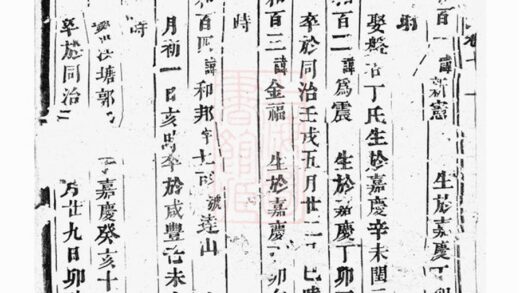 卷十一
和百一 諱新憲 生於嘉慶丁卯
娶盤谷丁氏生於嘉慶辛未閏三
和百二 諱為震 生於嘉慶丁卯
卒於同治壬戌五月廿二日巳時
和百三 諱金福 生於嘉慶 卯
時
和百四 諱和邦 字 號達山
月初一日亥時卒於咸豐 未
時
塘郭 嘉慶癸亥十
卒於同治 月廿九日卯